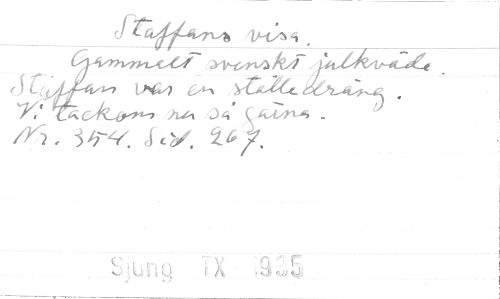 Staffans visa.
Gammalt svenskt julkväde.
Staffan var en stalledräng.
Vi tackom nu så gärna.
Nr. 354. Sid. 267.
Sjung IX 1935